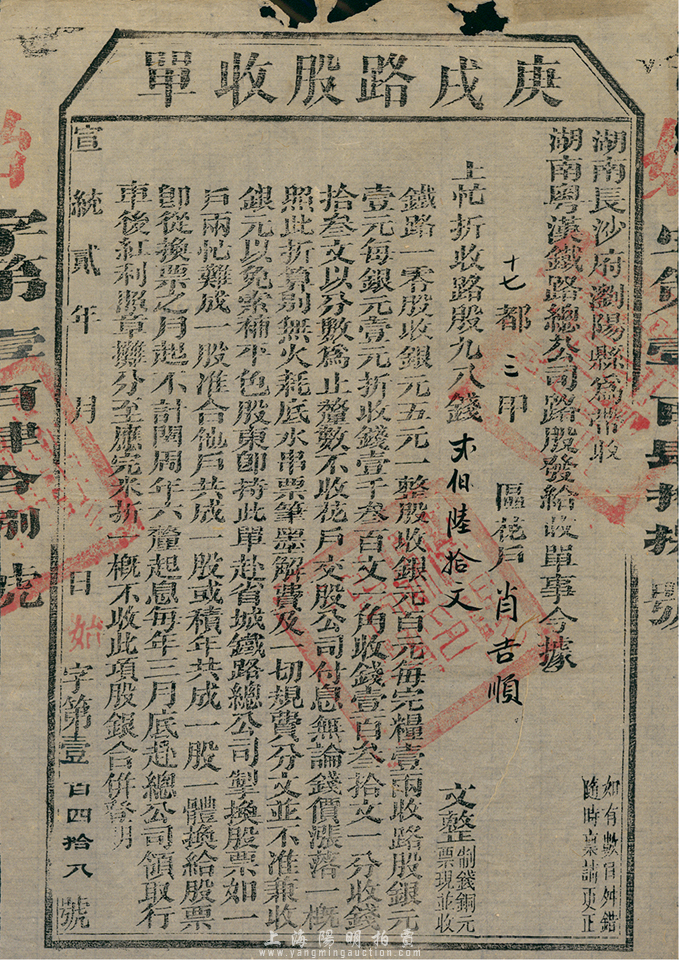 庚戌路股收單
湖南長沙府瀏陽縣為帶收
湖南粵漢鐵路總公司路股發給收單事今據
十七都三甲 區花戶 肖吉順
上忙折收路股九八錢 弍伯陸拾文 文整 制錢銅元票現並收
鐵路一零股收銀元五元一整股收銀元百元每完糧壹兩收路股銀元
壹元每銀元壹元折收錢壹千叁百文一角收錢壹百叁拾文一分收錢
拾叁文以分數為止釐數不收花戶交股公司付息無論錢價漲落一概
照此折算別無火耗底水串票筆墨解費及一切規費分文並不准兼收
銀元以免索補平色股東即持此單赴省城鐵路總公司掣換股票如一
戶兩忙難成一股准合他戶共成一股或積年共成一股一體換給股票
即從換票之月起不計閏周年六釐起息每年三月底赴總公司領取行
車後紅利照章攤分至應完米折一概不收此項股銀合併登明
宣統貳年 月 日 始字第壹百四拾八號
如有數目舛錯
隨時稟請更正
字第壹百肆拾捌號
上海陽明拍賣
www.yangmingauction.com